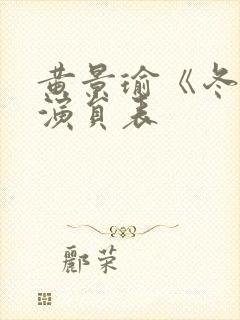 黄景瑜《冬
演員表
酈荣